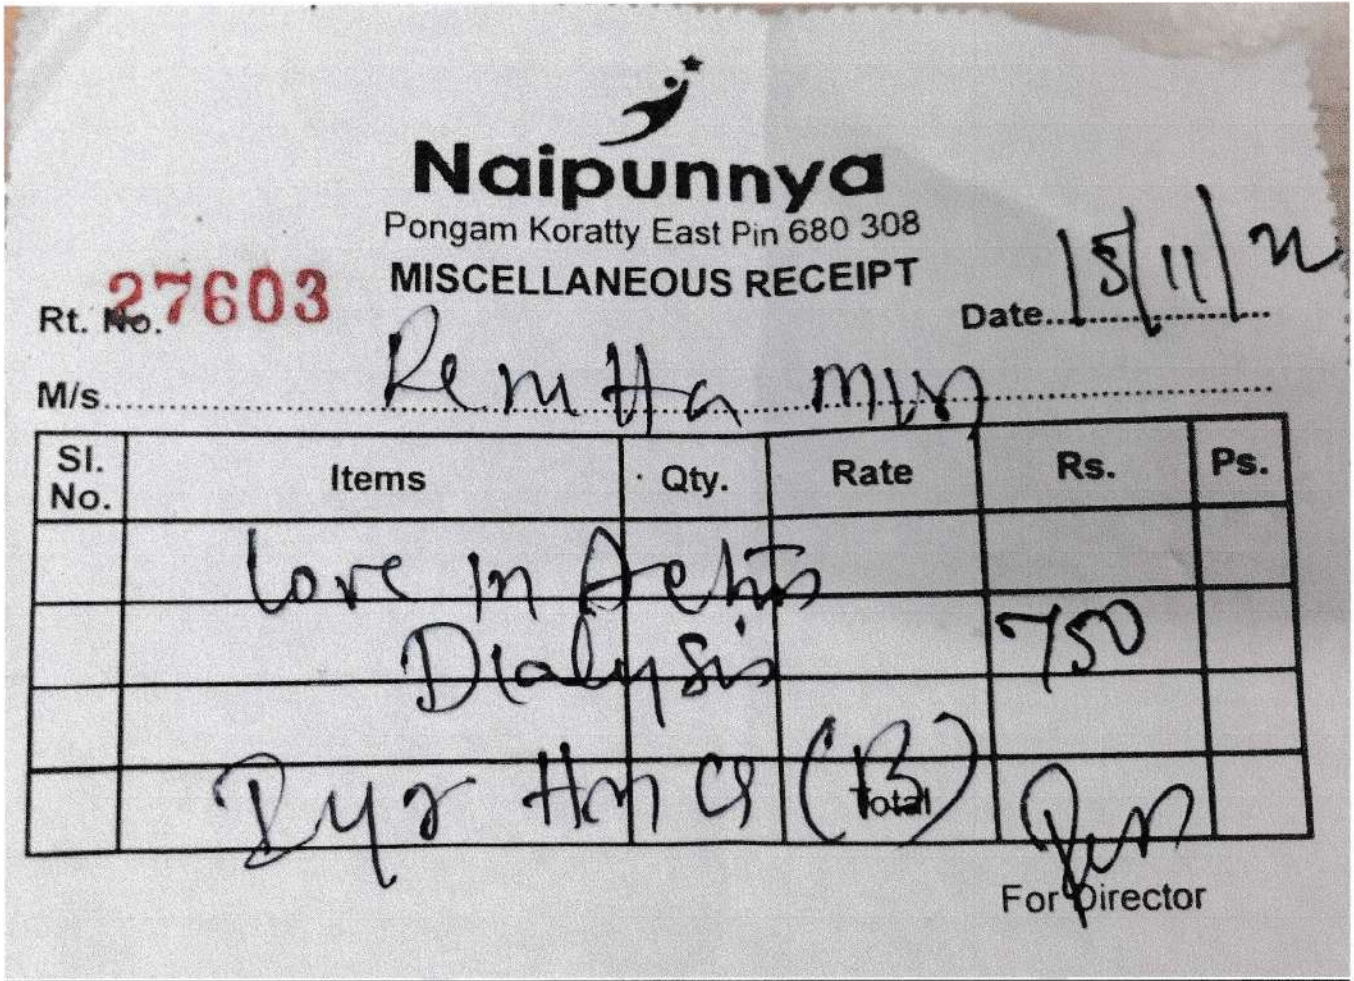 Naipunnya
Pongam Koratty East Pin 680 308
MISCELLANEOUS RECEIPT
Rt. No. 27603
Date 15/11/22
M/s
Sl. No. Items Qty. Rate Rs. Ps.
Love In
Dialysis 750
(B)
Total
For Director